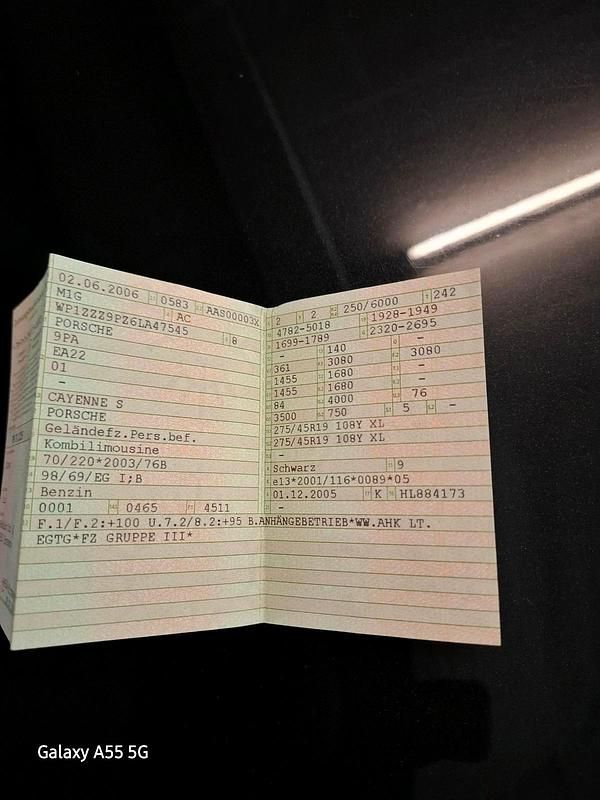 02.06.2006 0583 AAS00003X
M1G AC
WP1ZZZ9PZ6LA47545 8
PORSCHE
9PA
EA22
01
–
CAYENNE S
PORSCHE
Geländefz.Pers.bef.
Kombilimousine
70/220*2003/76B
98/69/EG I;B
Benzin
0001 0465 4511
2 2 250/6000 242
4782-5018 1928-1949
1699-1789 2320-2695
– 140 –
361 3080 3080
1455 1680 –
1455 1680 –
84 4000 76
3500 750 5 –
275/45R19 108Y XL
275/45R19 108Y XL
–
Schwarz 9
e13*2001/116*0089*05
01.12.2005 K HL884173
–
F.1/F.2:+100 U.7.2/8.2:+95 B.ANHÄNGEBETRIEB*WW.AHK LT.
EGTG*FZ GRUPPE III*
Galaxy A55 5G